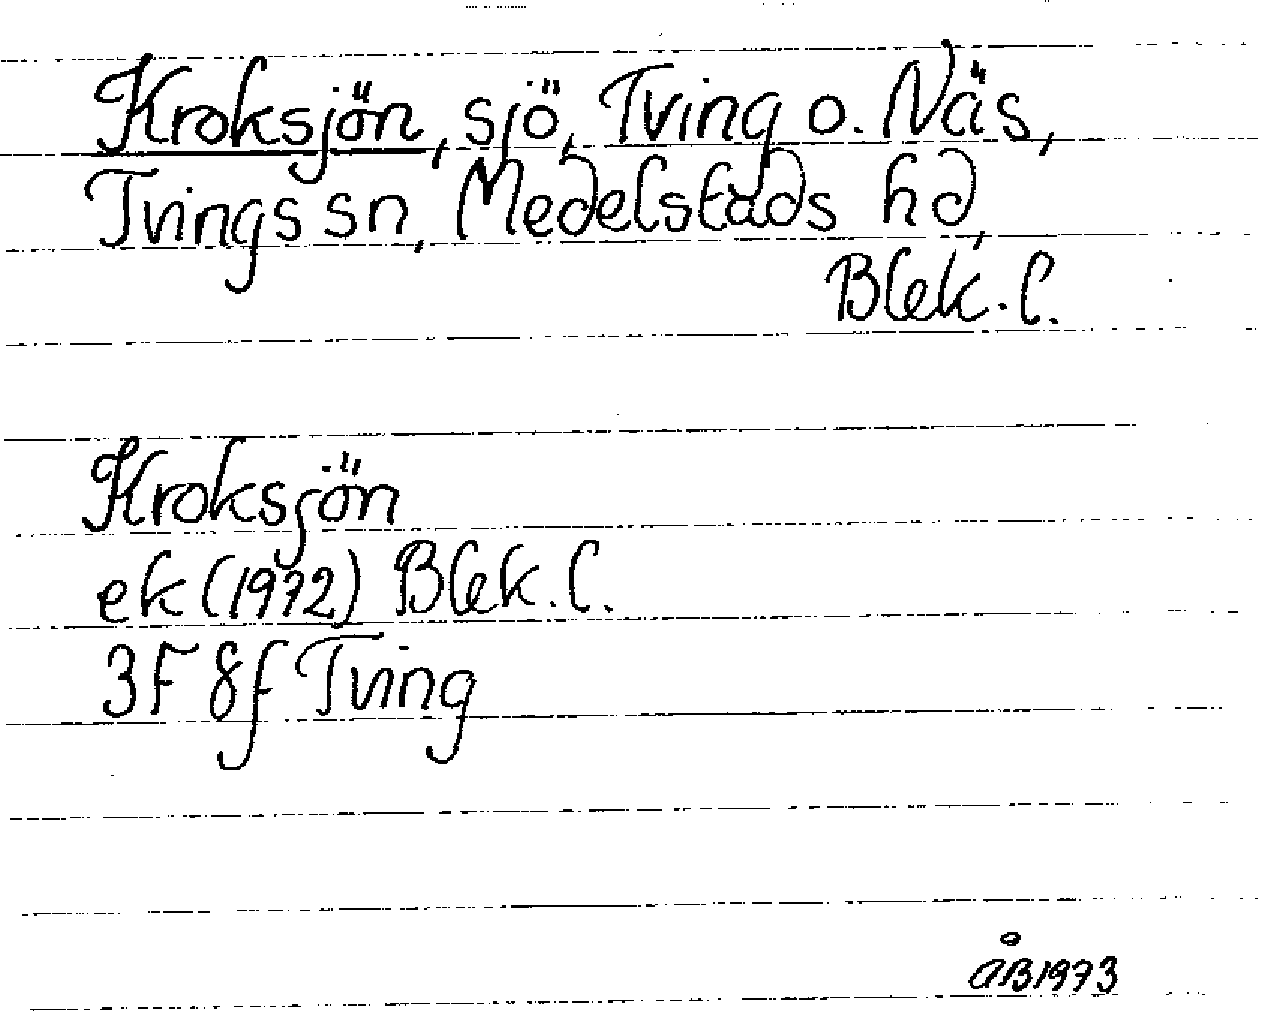 Kroksjön, sjö, Tving o. Näs,
Tvings sn, Medelstads hd,
Blek. l.
Kroksjön
ek (1972) Blek. l.
3F 8f Tving
ÅB 1973